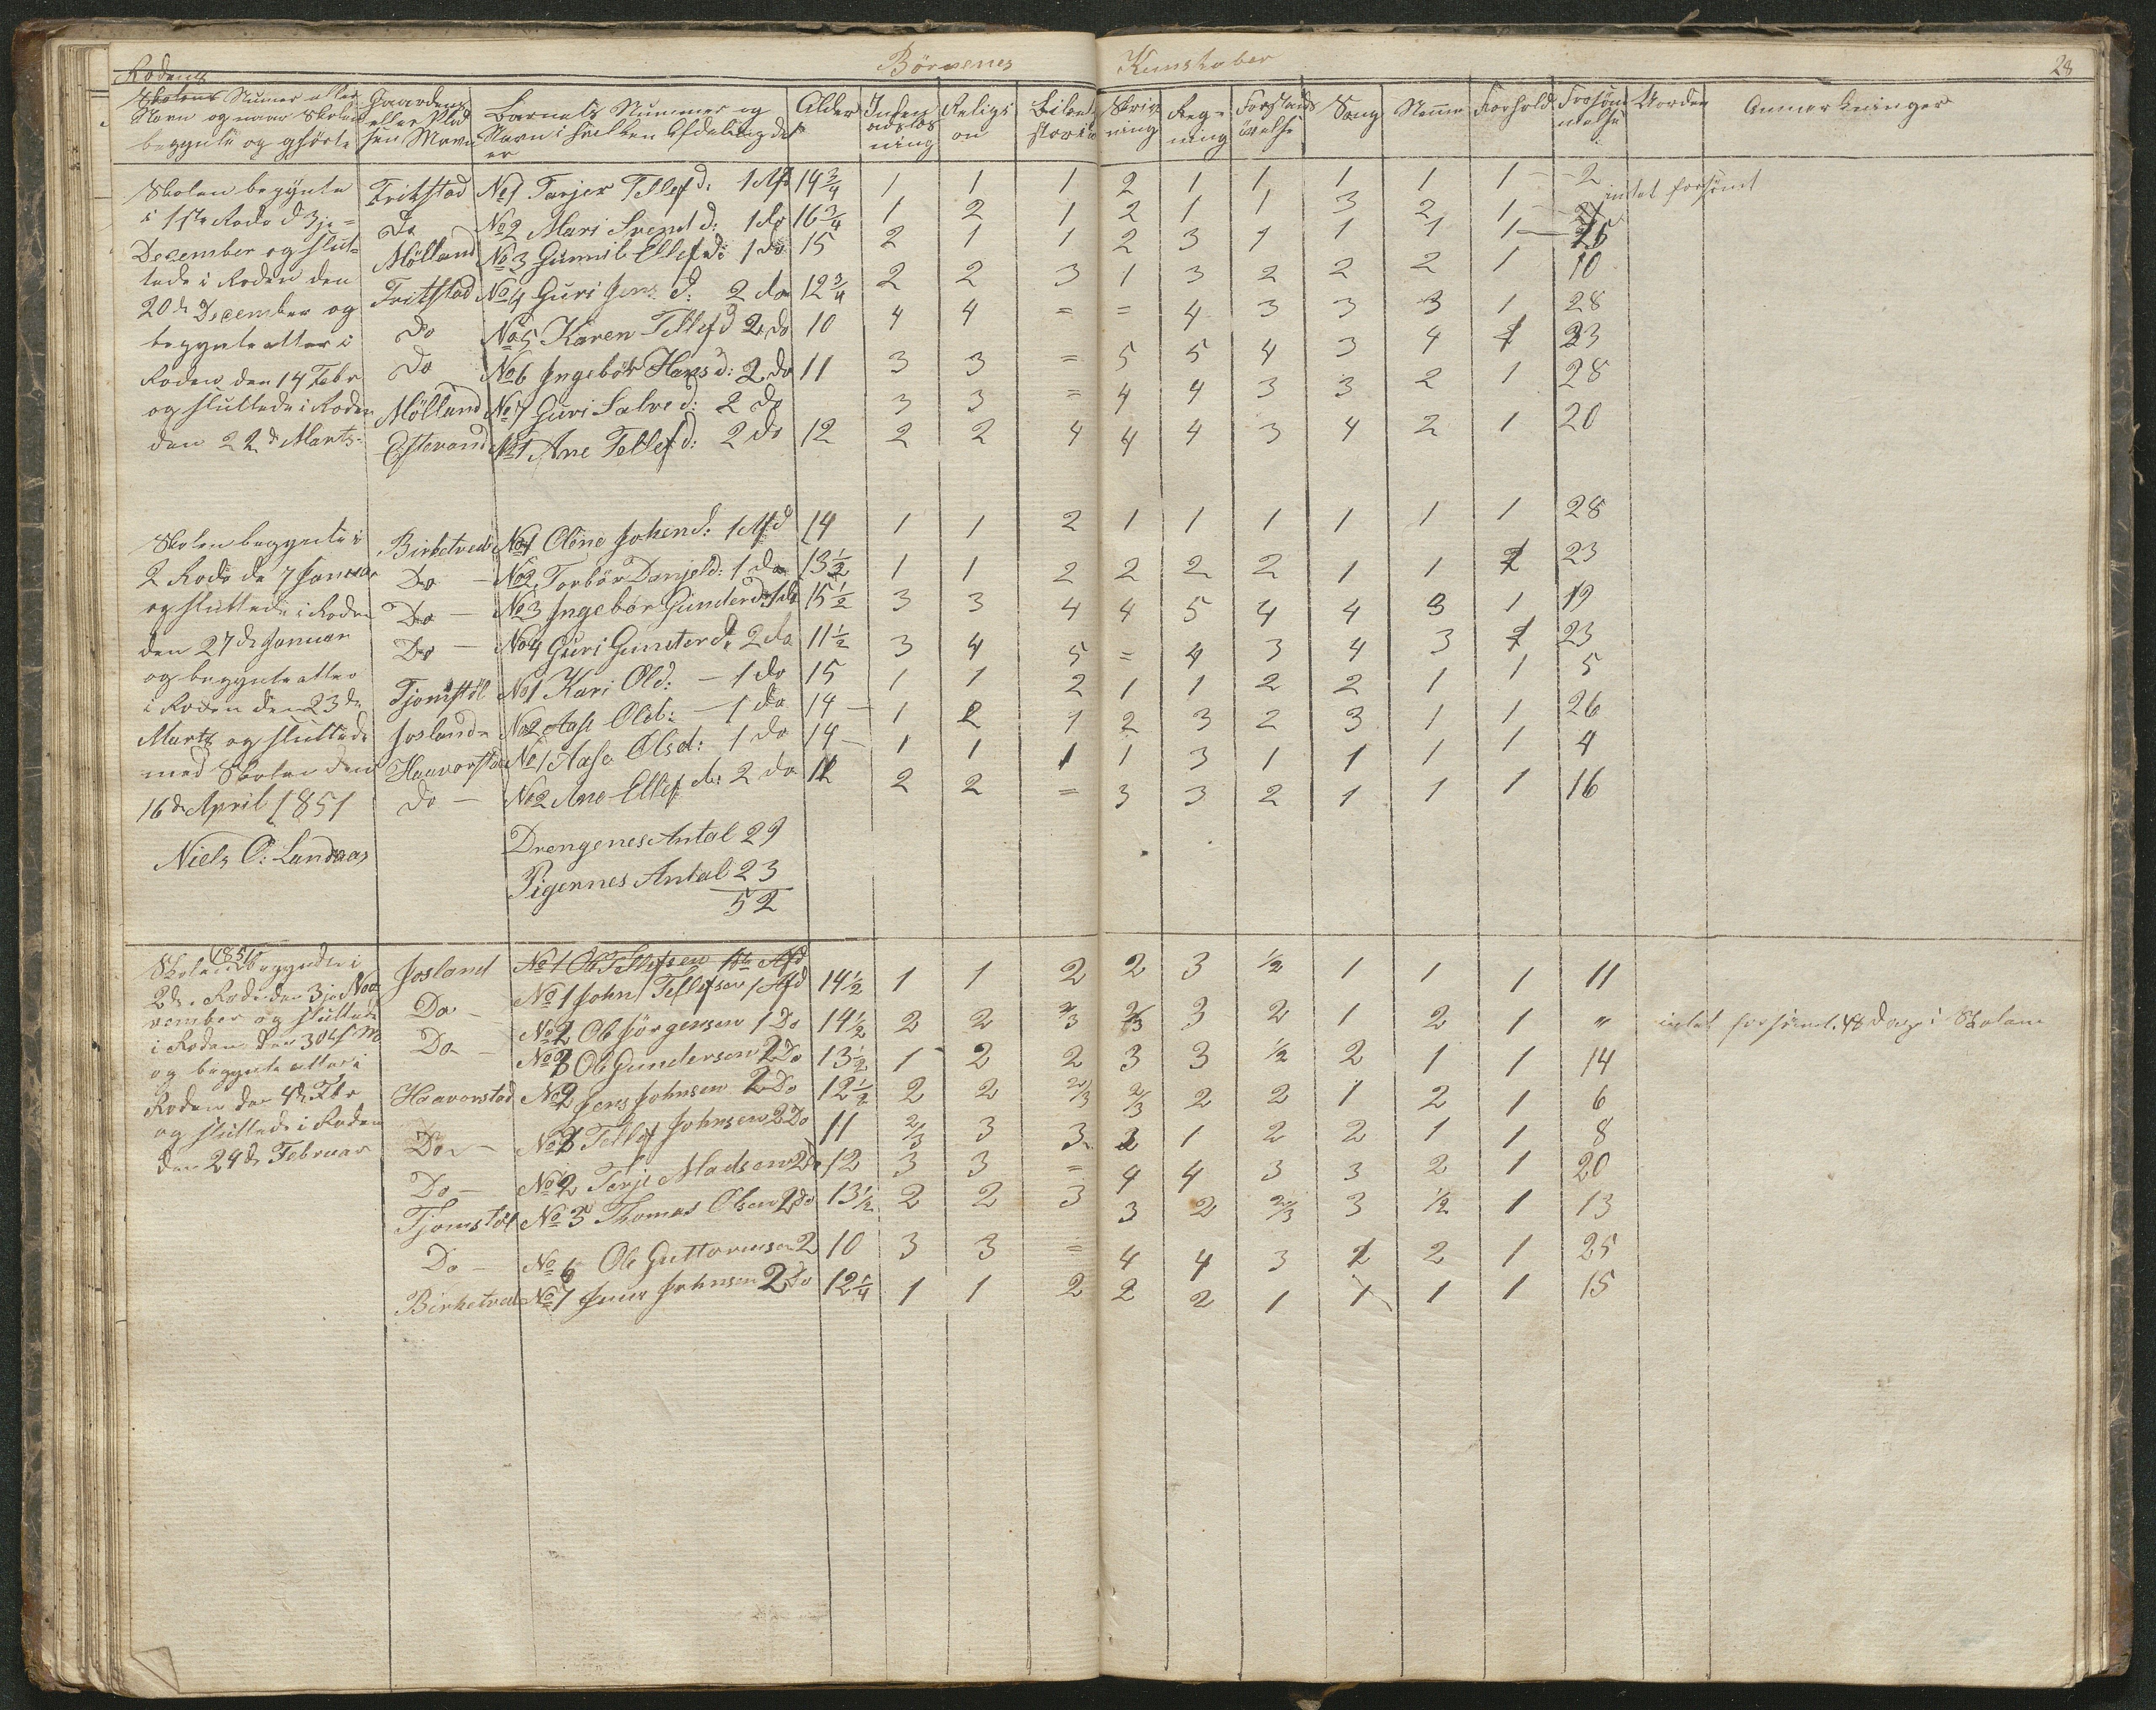 Börnenes Kunskaber 28
Rodens
Skolens Numer eller Navn og naar Skolen begynte og ophörte
Gaardens eller Pladsen Navn
Barnets Nummer og Navn i hvilken Afdeling det er
Alder
Religion
Skrivning
Regning
Sang
Nemme
Forhold
Forsömmelse
Anmærkninger
Skolen begynte
i 1ste Rode d 3je
December og slut-
tede i Roden den
20de December og
begynte atter i
Roden den 14 Febr
og sluttede i Roden
den 22de Marts.
Fritstad No 1 Tarjer Tellefd: 1 Afd 14 3/4 1 1 1 2 1 1 1 1 1 2
intet forsömt
Do No 2 Mari Svend d: 1 do 16 3/4 1 2 1 2 1 1 3 2 1
Mölland No 3 Gunnil Ellefd: 1 do 15 2 1 1 2 3 1 1 1 1
Fritstad No 4 Guri Jens d: 2 do 12 3/4 2 2 3 1 3 2 2 2 1 10
Do No 5 Karen Tellefd 2 do 10 4 4 = = 4 3 3 3 1 28
Do No 6 Ingebör Hans d: 2 do 11 3 3 = 5 5 4 3 4 1 23
Mölland No 7 Guri Salve d: 2 do 3 3 = 4 4 3 3 2 1 28
No 1 Ane Tellefd: 2 do 12 2 2 4 4 4 3 4 2 1 20
Skolen begynte i
2 Rode de 7 Januar
og sluttede i Roden
den 27de Januar
og begynte atter
i Roden den 23de
Marts og sluttede
med Skolen den
16de April 1851
Niels O: Landaas
Birketveds No 1 Oline Johend: 1 Afd 14 1 1 2 1 1 1 1 1 1 28
Do No 2 Torbör Danjeld: 1 do 13 1/2 1 1 2 2 2 2 1 1 2 23
Do No 3 Ingebor Gunderd: 1 do 15 1/2 3 3 4 4 5 4 4 3 1 19
Do No 4 Guri Gunderd: 2 do 11 1/2 3 4 5 = 4 3 4 3 1 23
Tjomstöl No 1 Kari Old: 1 do 15 1 1 2 1 1 2 2 1 1 5
Josland No 2 Aase Old: 1 do 14 1 2 1 2 3 2 3 1 1 26
Haavorstad No 1 Aase Olsd: 1 do 14 1 1 1 1 3 1 1 1 1 4
Do No 2 Ane Ellefd: 2 do 12 2 2 = 3 3 2 1 1 1 16
Drengenes Antal 29
Pigernes Antal 23
52
1851
Skolen begyndte i
2de Rode den 3je No-
vember og sluttede
i Roden den 30te
og begynte atter i
Roden den 4de Febr
og sluttede i Roden
den 24de Februar
Josland No 1 Ole Tellefsen 1ste Afd
No 1 John Tellefsen 1 Afd 14 1/2 1 1 2 2 3 1/2 1 1 1 11
Do No 2 Ole Jörgensen 1 Do 14 1/2 2 2 2/3 2/3 3 2 1 2 1 "
intet forsömt. 48 Dage i Skolen
Do No 3 Ole Gundersen 2 Do 13 1/2 1 2 2 3 3 1/2 2 1 1 14
Haavorstad No 2 Jens Johnsen 2 Do 12 1/2 2 2 2/3 2/3 2 2 1 2 1 6
Do No 3 Tellef Johnsen 2 Do 11 2/3 3 3 2 1 2 2 1 1 8
Do No 2 Terje Madsen 2 Do 12 3 3 = 4 4 3 3 2 1 20
Tjomstöl No 3 Thomas Olsen 2 Do 13 1/2 2 2 3 3 2 2/3 3 1/2 1 13
Do No 6 Ole Guttormsen 2 10 3 3 = 4 4 3 2 2 1 25
Birketved No 1 Johnsen 2 Do 12 1/4 1 1 2 2 2 1 1 1 1 15